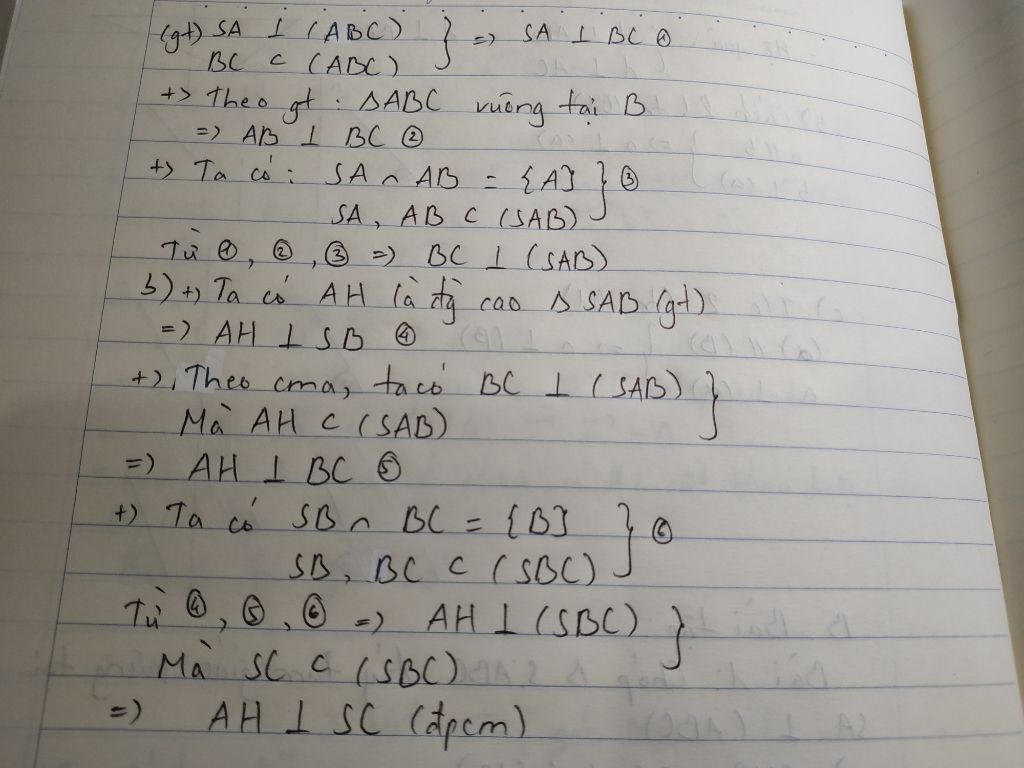 (gt) SA ⊥ (ABC) } => SA ⊥ BC ①
BC ⊂ (ABC)
+> Theo gt : ΔABC vuông tại B
=> AB ⊥ BC ②
+> Ta có : SA ∩ AB = {A} } ③
SA, AB ⊂ (SAB)
Từ ①, ②, ③ => BC ⊥ (SAB)
b) +) Ta có AH là đg cao Δ SAB (gt)
=> AH ⊥ SB ④
+) Theo cma, ta có BC ⊥ (SAB) }
Mà AH ⊂ (SAB)
=) AH ⊥ BC ⑤
+) Ta có SB ∩ BC = {B} } ⑥
SB, BC ⊂ (SBC)
Từ ④, ⑤, ⑥ =) AH ⊥ (SBC) }
Mà SC ⊂ (SBC)
=) AH ⊥ SC (đpcm)